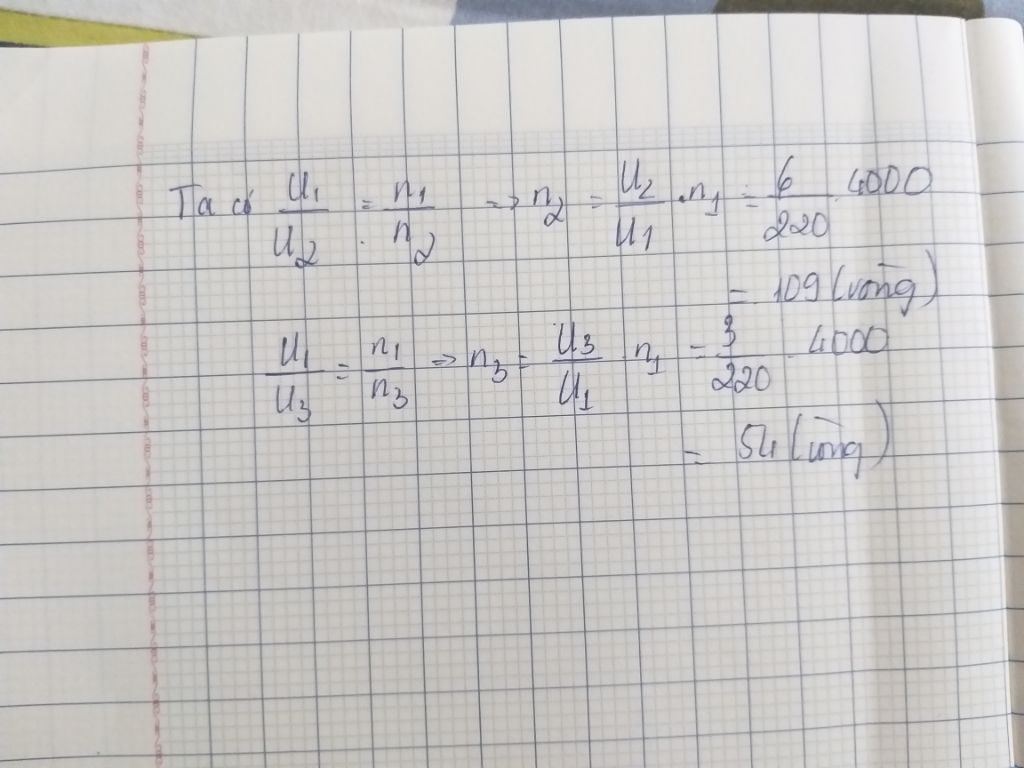 Ta có U1/U2 = n1/n2 => n2 = U2/U1 . n1 = 6/220 . 4000
= 109 (vòng)
U1/U3 = n1/n3 => n3 = U3/U1 n1 = 3/220 . 4000
= 54 (vòng)